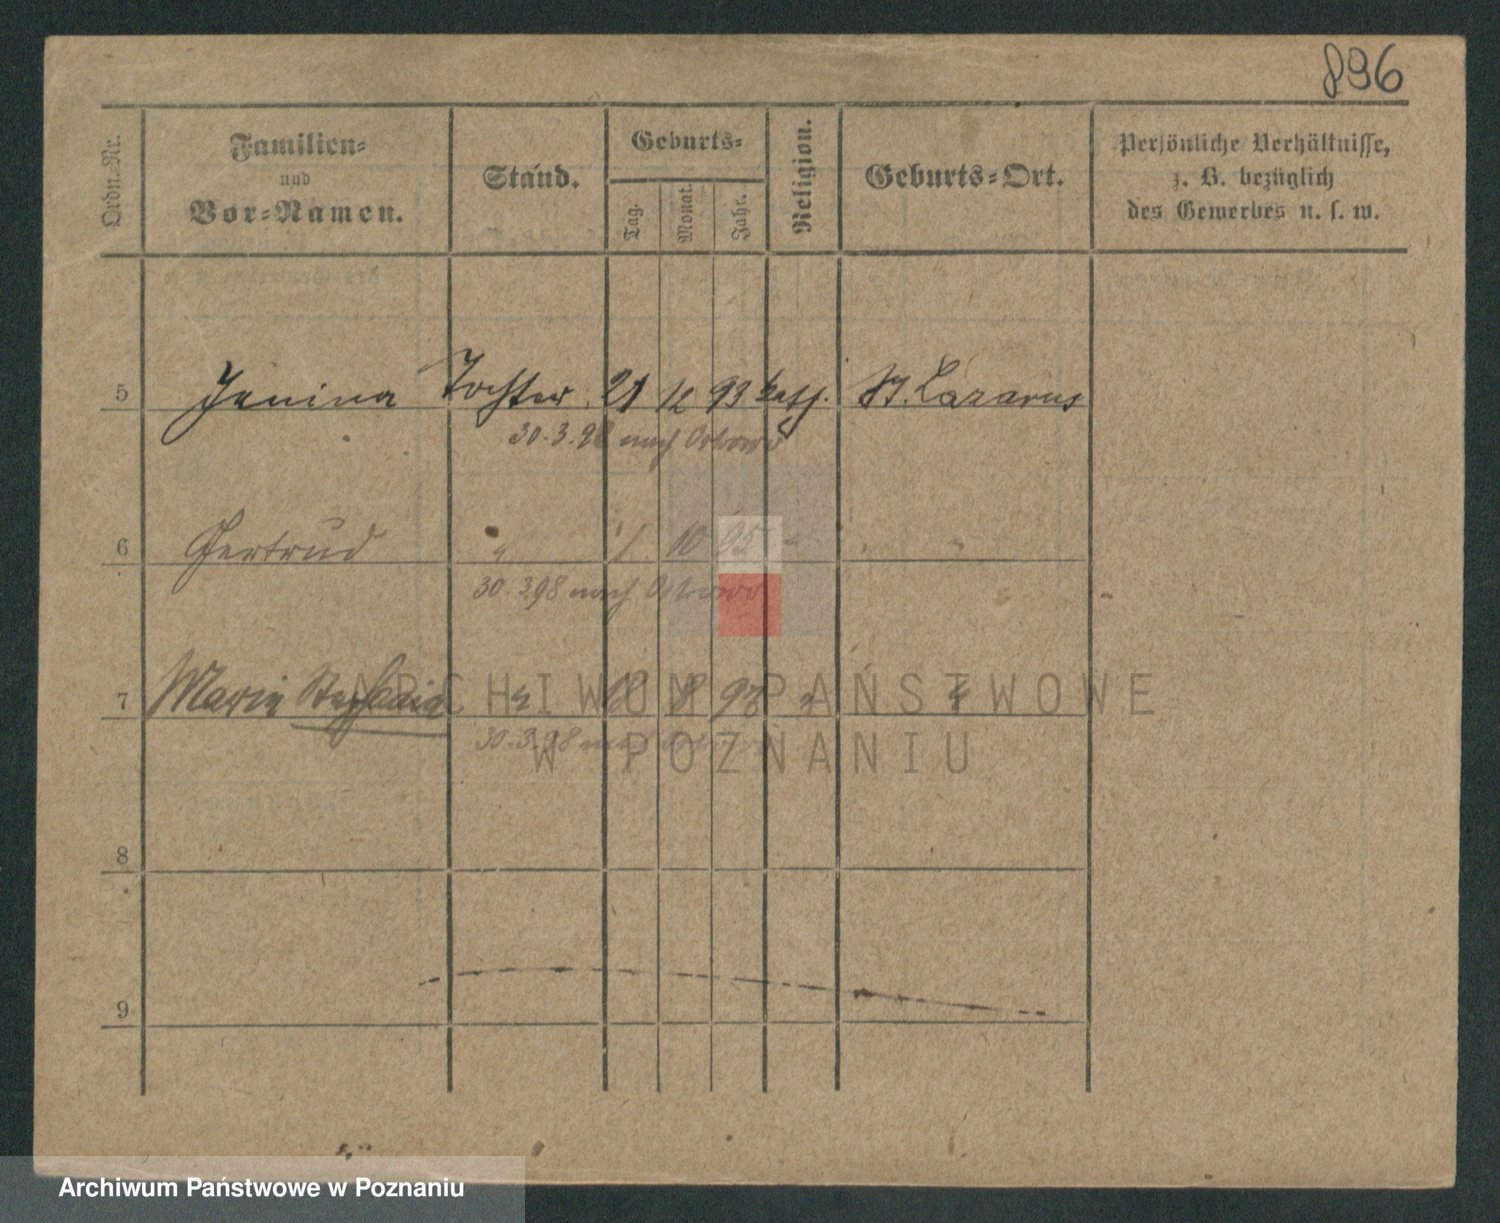 896
Ordn.-Nr.
Familien-
und
Vor-Namen.
Stand.
Geburts-
Tag.
Monat.
Jahr.
Religion.
Geburts-Ort.
Persönliche Verhältnisse,
z. B. bezüglich
des Gewerbes u. s. w.
5 Janina Tochter 21 12 93 kath. St. Lazarus
30.3.98 nach Ostrowo
6 Gertrud " 1 10 95 " "
30.3.98 nach Ostrowo
7 Maria " 8 " "
30.3.98 nach Ostrowo
8
9
ARCHIWUM PAŃSTWOWE
W POZNANIU
Archiwum Państwowe w Poznaniu